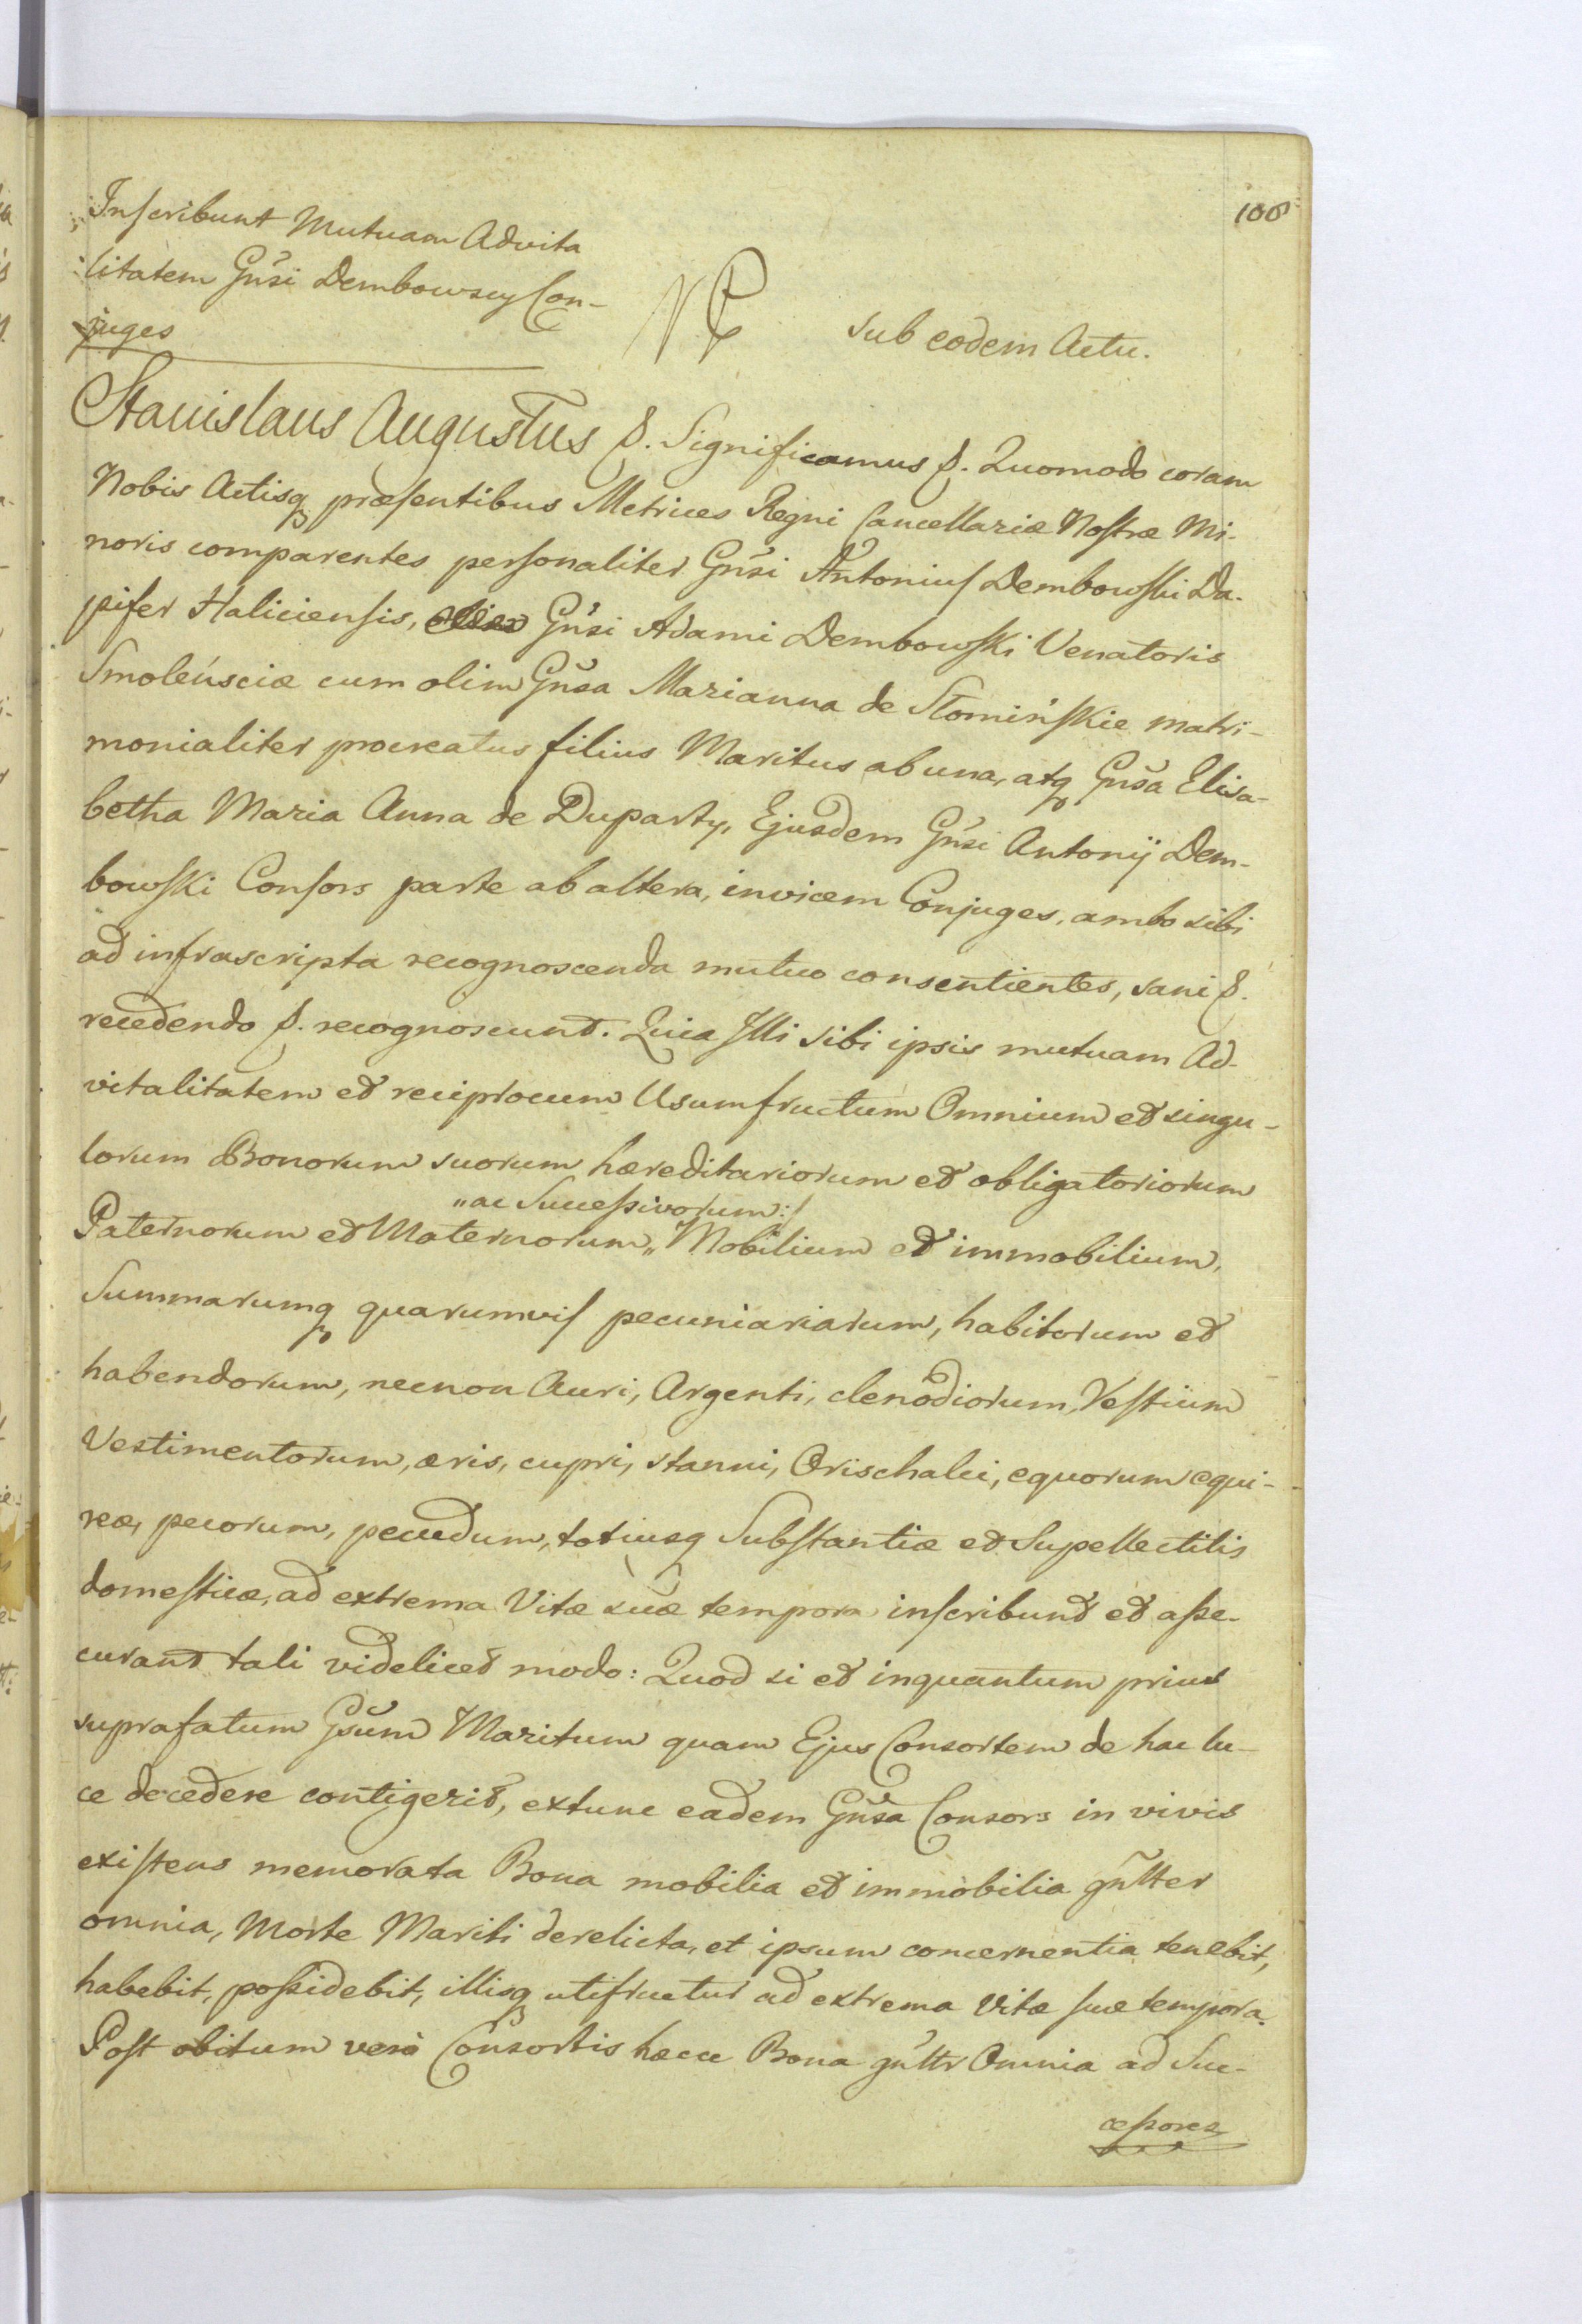 106
Inscribunt Mutuam Advita
litatem Gñsi Dembowscy Con-
juges
sub eodem Actu.
Stanislaus Augustus &. Significamus &. Quomodo coram
Nobis Actisq præsentibus Metrices Regni Cancellariæ Nostræ Mi-
noris comparentes personaliter Gñsi Antonius Dembowski Da-
pifer Haliciensis, Gñsi Adami Dembowski Venatoris
Smoleńsciæ cum olim Gñsa Marianna de Słomińskie matri-
monialiter procreatus filius Maritus ab una, atq Gnsa Elisa-
betha Maria Anna de Duparty, Ejusdem Gñsi Antonij Dem-
bowski Consors parte ab altera, invicem Conjuges, ambo sibi
ad infrascripta recognoscenda mutuo consentientes, sani &.
recedendo &. recognoscunt. Quia Illi sibi ipsis mutuam Ad-
vitalitatem et reciprocum Usumfructum Omnium et singu-
lorum Bonorum suorum hæreditariorum et obligatoriorum
„ac Successivorum:/
Paternorum et Maternorum„ Mobilium et immobilium,
Summarumq quarumvis pecuniariarum, habitorum et
habendorum, necnon Auri, Argenti, clenodiorum, Vestium
Vestimentorum, æris, cupri, stanni, Orischalci, equorum equi-
reæ, pecorum, pecudum, totiusq Substantiæ et Supellectilis
domesticæ, ad extrema Vitæ suæ tempora inscribunt et asse-
curant tali videlicet modo: Quod si et inquantum prius
suprafatum Gsum Maritum quam Ejus Consortem de hac lu-
ce decedere contigerit, extunc eadem Gñsa Consors in vivis
existens memorata Bona mobilia et immobilia gñlter
omnia, Morte Mariti derelicta, et ipsum concernentia tenebit,
habebit, possidebit, illisq utifruetur ad extrema Vitæ suæ tempora.
Post obitum verò Consortis hæcce Bona gñltr Omnia ad Suc-
cessores